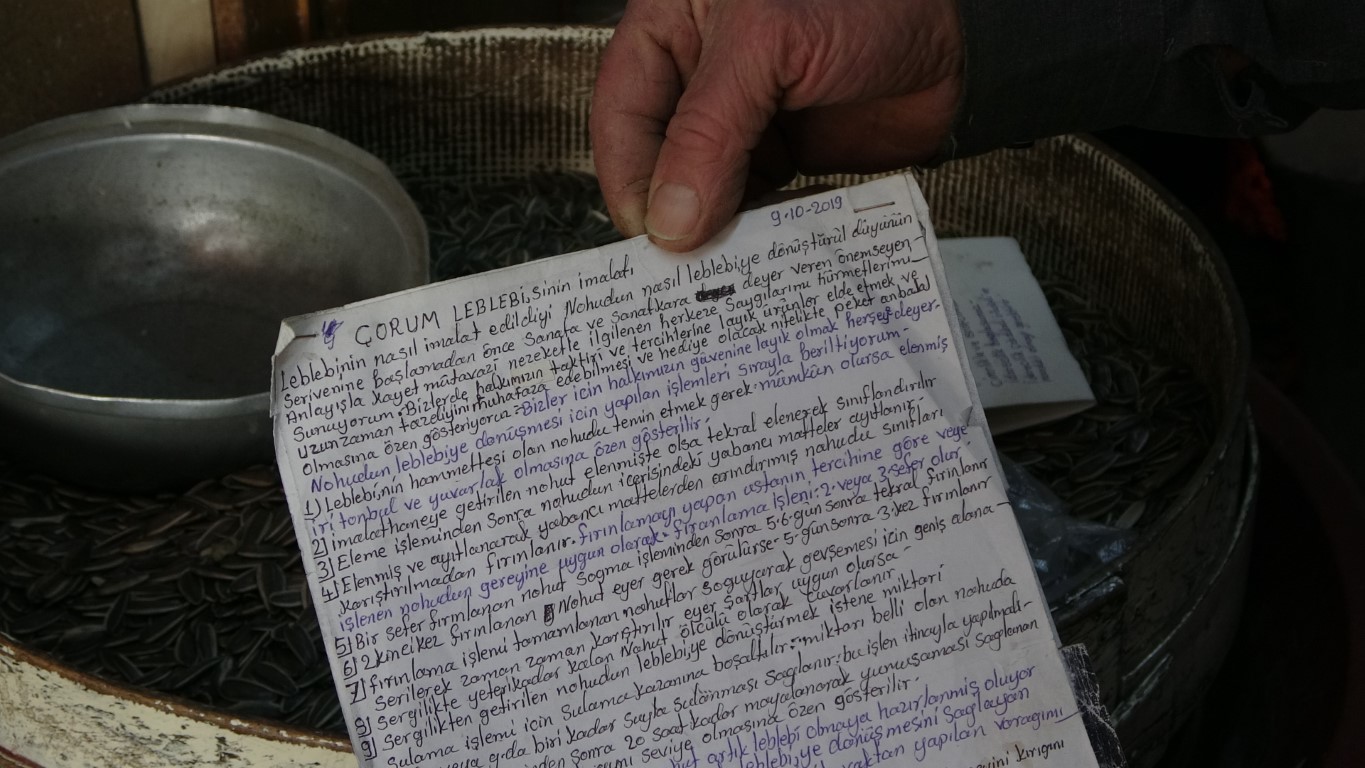 9-10-2019
ÇORUM LEBLEBİ,Sinin imalatı
Leblebinin nasıl imalat edildiyi Nohudun nasıl leblebi,ye dönüştürül düyünün
Serivenine başlamadan önce Sanata ve Sanatkara deyer veren önemseyen
Anlayışla Kayet mütavazi nezeketle ilgilenen herkeze Saygılarımı hürmetlerimi
Sunuyorum. Bizlerde halkımızın taktiri ve tercihlerine layık ürünler elde etmek ve
uzun zaman tazeliyini muhafaza edebilmesi ve hediye olacak nitelikte peket anbalaj
olmasına özen gösteriyoruz. Bizler için halkımızın güvenine layık olmak herşeye deyer.
Nohudun leblebiye dönüşmesi için yapılan işlemleri sırayla beriltiyorum.
1) Leblebi,nin hammettesi olan nohudu temin etmek gerek. mümkün olursa elenmiş
iri tombul ve yuvarlak olmasına özen gösterilir.
2) imalathaneye getirilen nohut elenmişte olsa tekral elenerek sınıflandırılır
3) Eleme işleminden Sonra nohudun içerisindeki yabancı matteler ayıtlanır.
4) Elenmiş ve ayıtlanarak yabancı mattelerden arındırımış nahudu sınıfları
Karıştırılmadan fırınlanır. fırınlamayı yapan ustanın tercihine göre veye
işlenen nohudun gereyine uygun olarak. fırınlama işleni. 2. veya 3. sefer olur
5) Bir sefer fırınlanan nohut Sogma işleminden sonra 5.6. gün sonra tekral fırınlanır
6) 2 kinci kez fırınlanan Nohut eyer gerek görülürse. 5. gün sonra 3. kez fırınlanır
7) fırınlama işlemi tamamlanan nohutlar soguyarak gevşemesi için geniş alana
Serilerek zaman zaman karıştırılır eyer şartlar uygun olursa.
8) Sergilikte yeteri kadar kalan Nahut ölcülü olarak tuvarlanır
9) Sergilikten getirilen nohudun leblebiye dönüştürmek istene miktarı
Sulama işlemi için Sulama kazanına boşaltılır. miktarı belli olan nohuda
veya 9.da biri kadar Suyla Sulanması Sağlanır. bu işlen itinayla yapılmalı
inden sonra 20 saat kadar mayalanarak yumuşaması Sağlanan
seviye olmasına özen gösterilir.
hut artık leblebi olmaya hazırlanmış oluyor
leblebi,ye dönüşmesini Sağlayan
yapılan varagımı
kırıgını